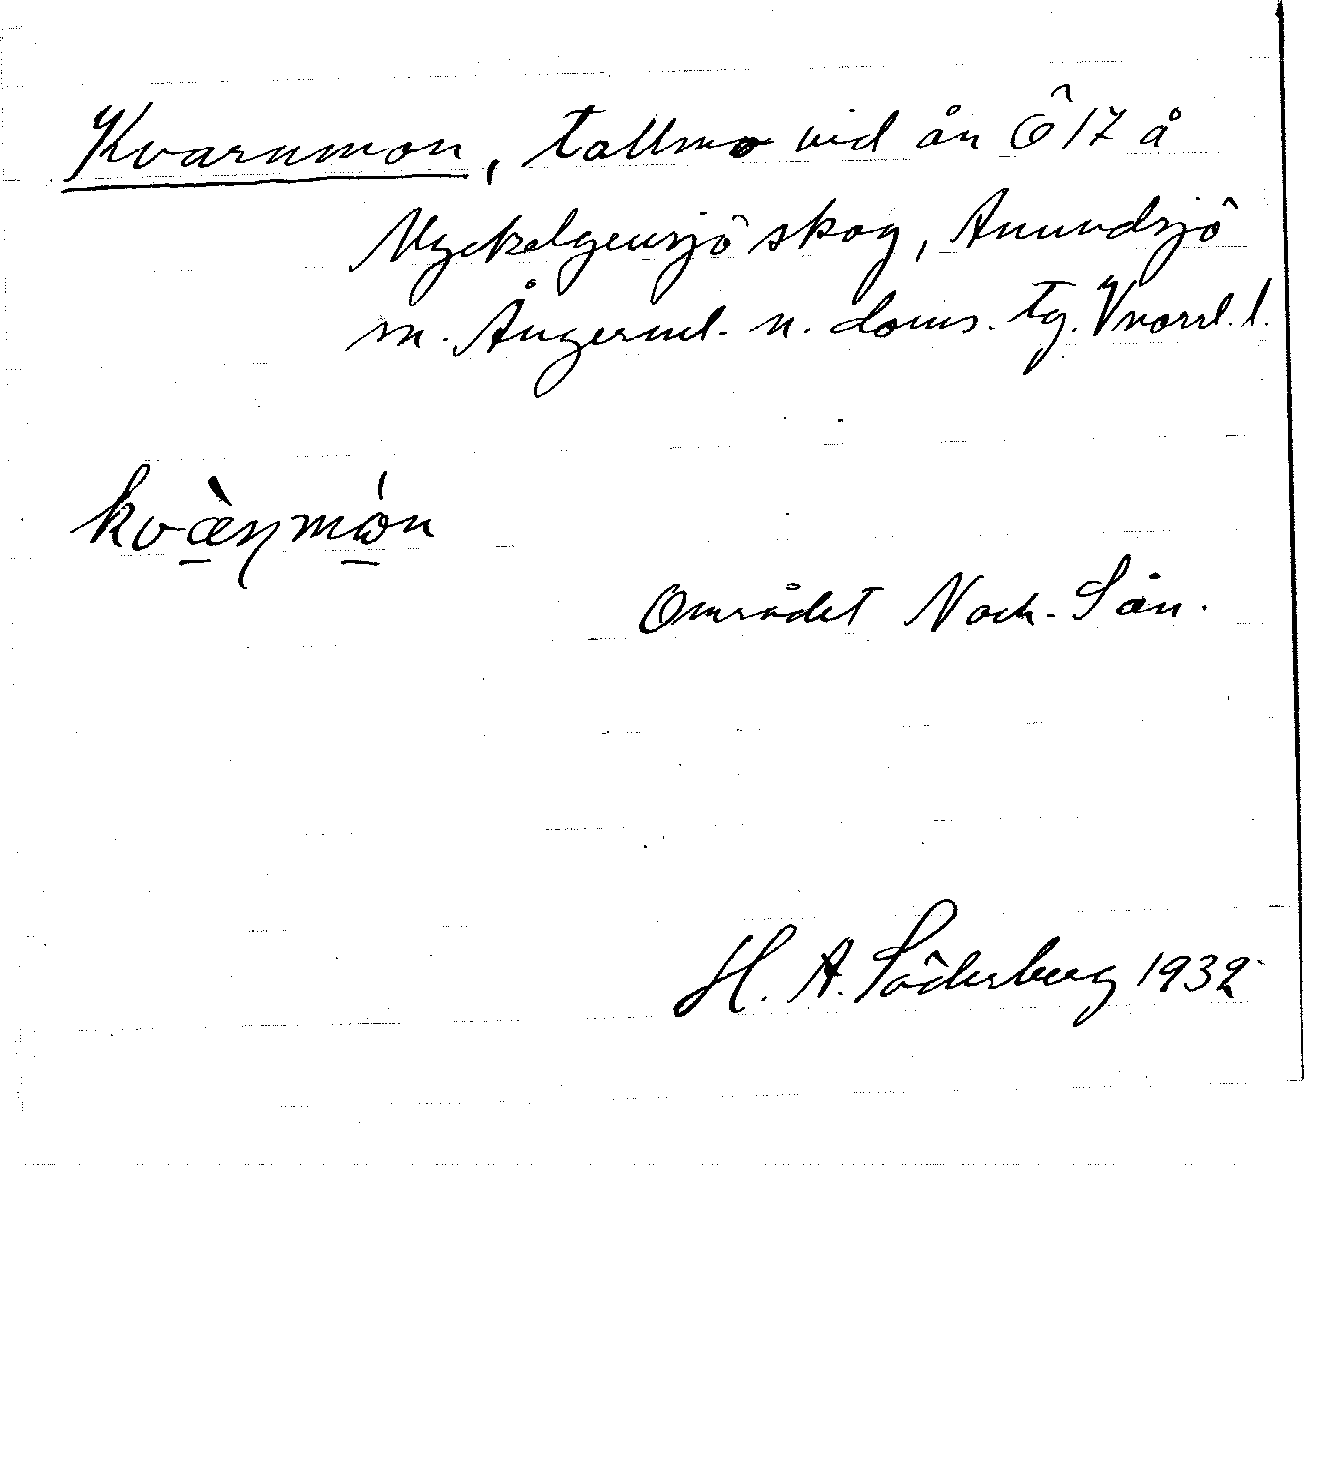 Kvarnmon, tallmo vid ån Ö 17 å
Myckelgensjö skog, Anundsjö
sn. Ångerml. n. doms. tg. Vnorrl. l.
kvæ̀ṇmón
Området Nock. Sån.
H. A. Söderberg 1932